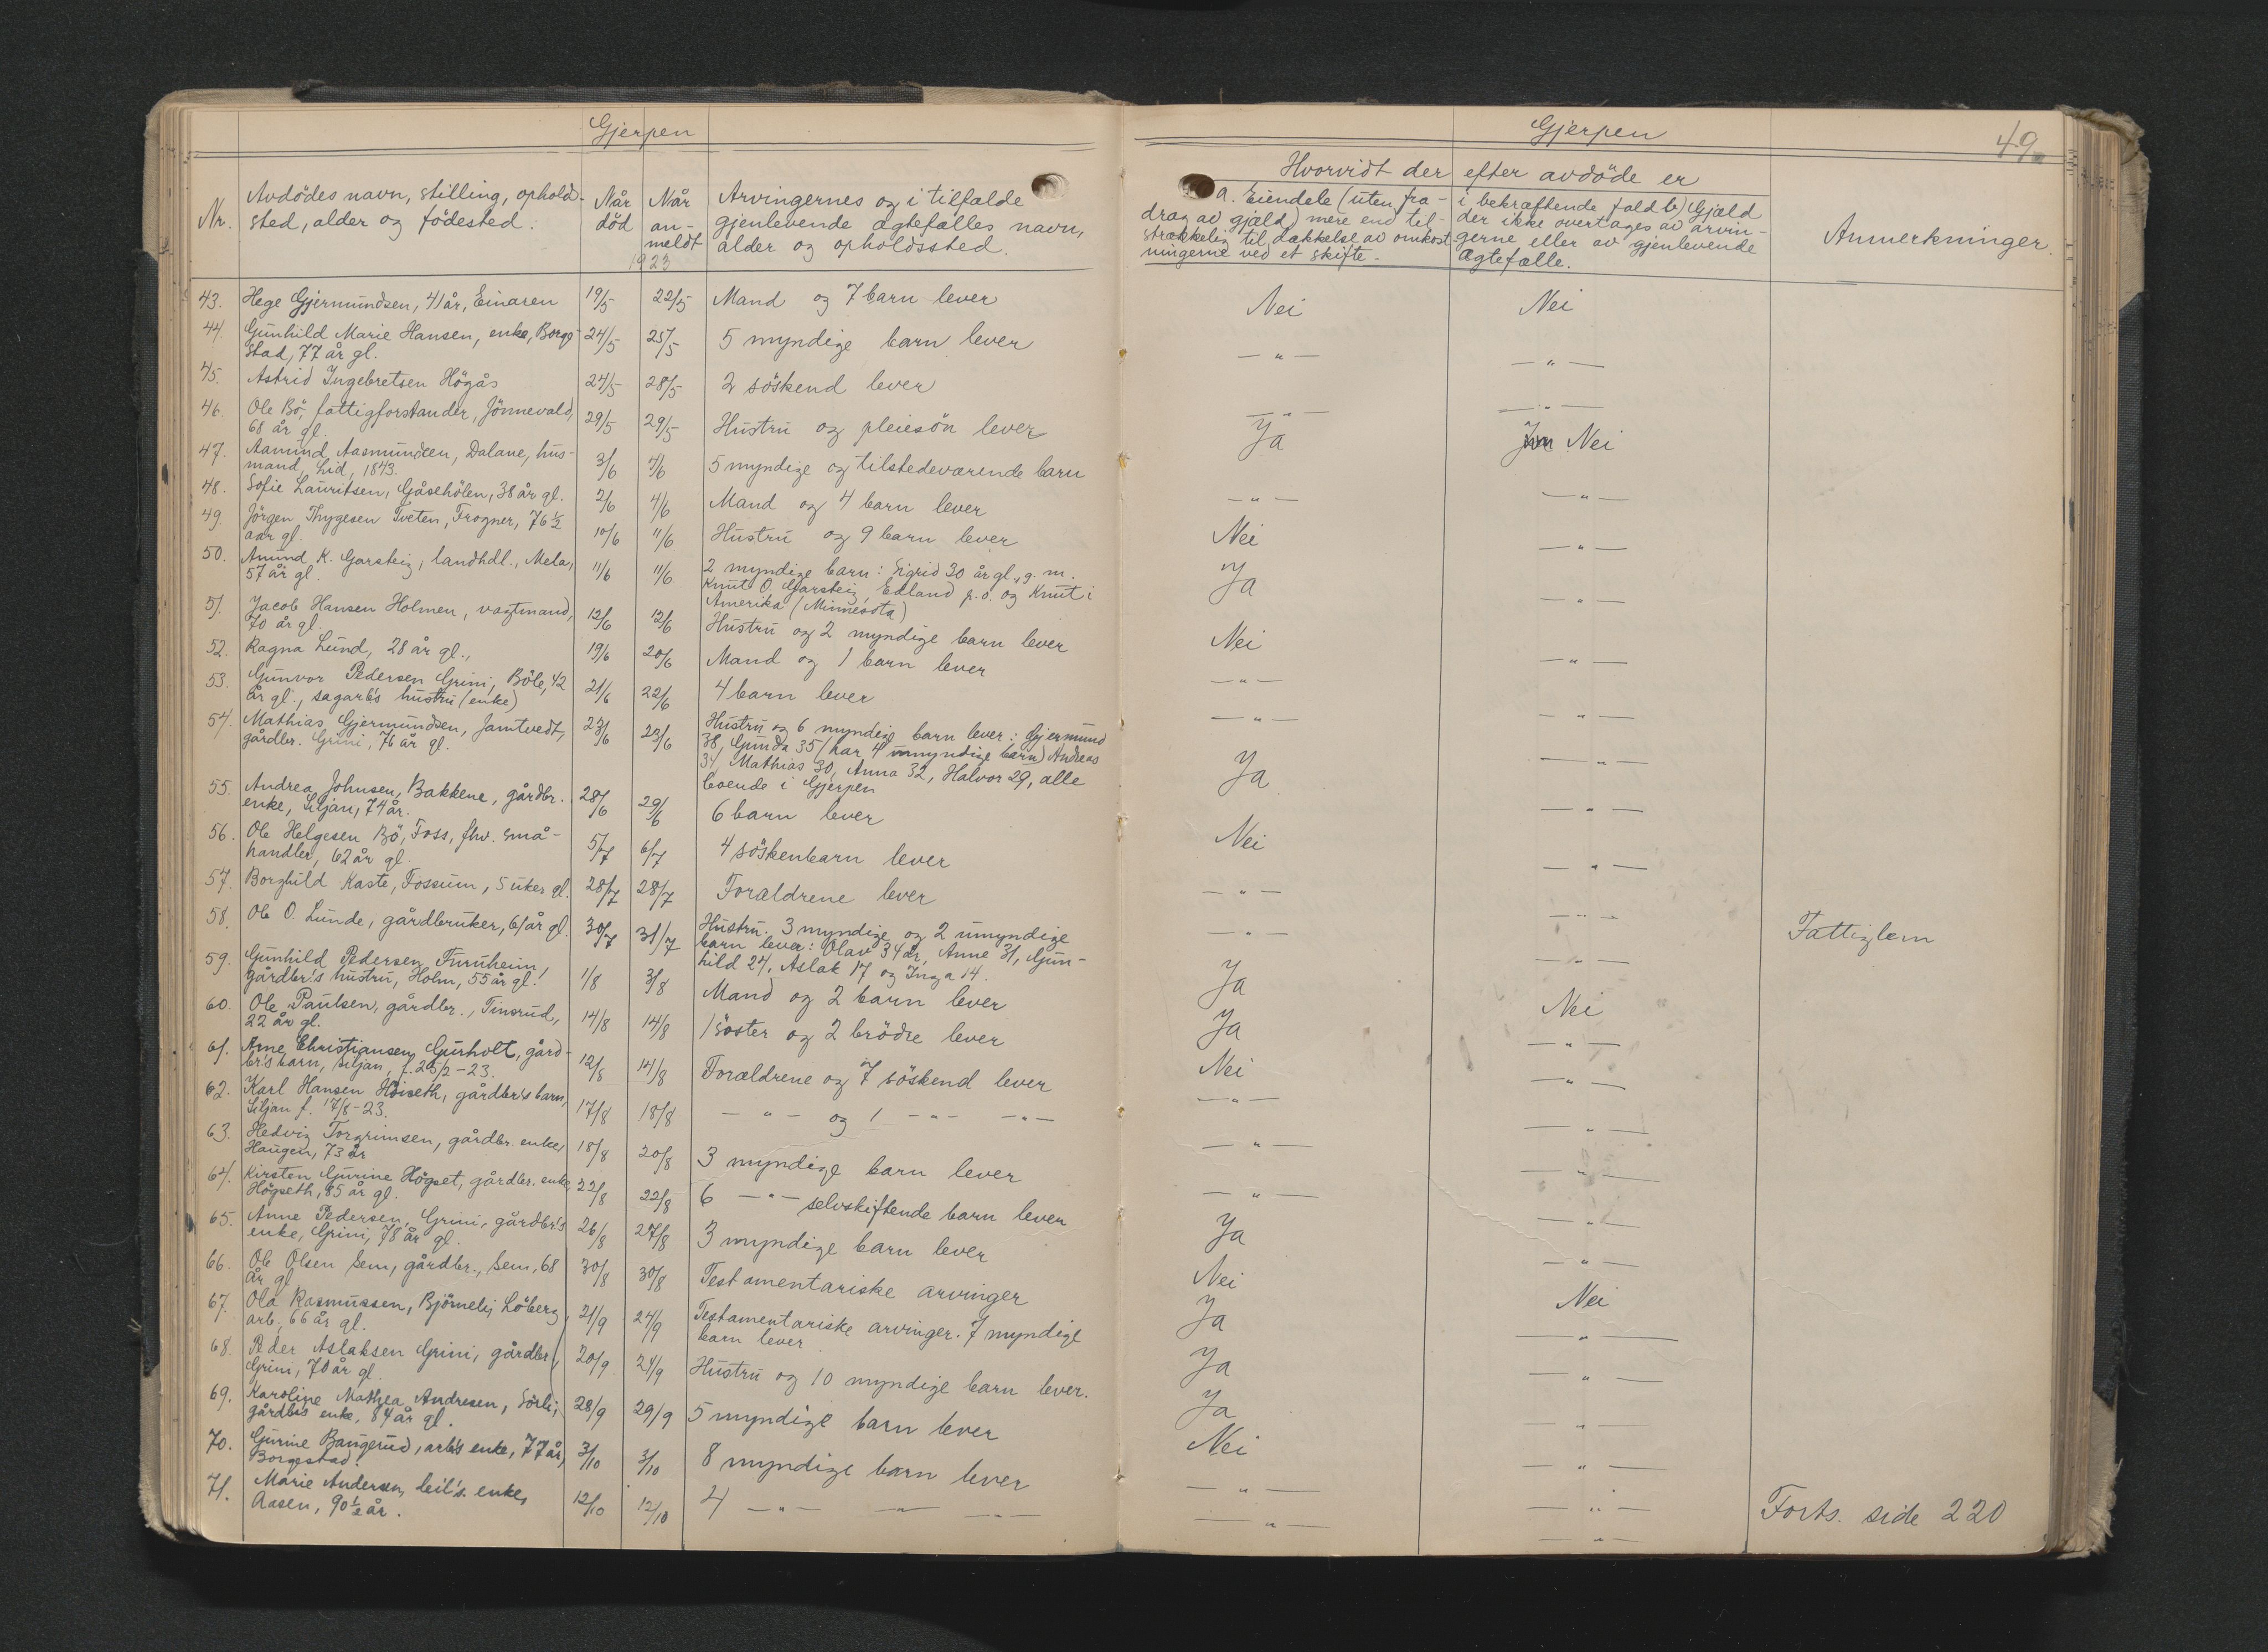 Gjerpen
Nr.
Avdödes navn, stilling, ophold-
sted, alder og födested.
Når
död
Når
an-
meldt
1923
Arvingernes og i tilfælde
gjenlevende ægtefælles navn,
alder og opholdssted.
43. Hege Gjermundsen, 41 år, Einaren 19/5 22/5 Mand og 7 barn lever
44. Gunhild Marie Hansen, enke, Borge- 24/5 25/5 5 myndige barn lever
stad, 77 år gl.
45. Astrid Ingebretsen Högås 24/5 28/5 2 söskend lever
46. Ole Bö, fattigforstander, Jönnevald, 29/5 29/5 Hustru og pleiesön lever
68 år gl.
47. Aamund Aasmundsen, Dalane, hus- 3/6 4/6 5 myndige og tilstedeværende barn
mand, Lid, 1843.
48. Sofie Lauritsen, Gåsehölen, 38 år gl. 2/6 4/6 Mand og 4 barn lever
49. Jörgen Thygesen Tveten, Frogner, 76 1/2 10/6 11/6 Hustru og 9 barn lever
aar gl.
50. Amund K. Garsteig, landhdl., Mela, 11/6 11/6 2 myndige barn: Sigrid 30 år gl., g. m.
57 år gl. Knut O. Garsteig, Edland p.o. og Knut i
Amerika (Minnesota)
51. Jacob Hansen Holmen, vagtmand, 12/6 12/6 Hustru og 2 myndige barn lever
70 år gl.
52. Ragna Lund, 28 år gl., 19/6 20/6 Mand og 1 barn lever
53. Gunvor Pedersen Grini, Böle, 42 21/6 22/6 4 barn lever
år gl., sagarb's hustru (enke)
54. Mathias Gjermundsen, Jamtvedt, 23/6 23/6 Hustru og 6 myndige barn lever: Gjermund
gårdbr. Grini, 76 år gl. 38, Gunda 35 (har 4 umyndige barn) Andreas
34, Mathias 30, Anna 32, Halvor 29, alle
boende i Gjerpen
55. Andrea Johnsen, Bakkene, gårdbr. 28/6 29/6 6 barn lever
enke, Siljan, 74 år.
56. Ole Helgesen Bö, Foss, fhv. små- 5/7 6/7 4 söskenbarn lever
handler, 62 år gl.
57. Borghild Kaste, Fossum, 5 uker gl. 28/7 28/7 Forældrene lever
58. Ole O. Lunde, gårdbruker, 61 år gl. 30/7 31/7 Hustru. 3 myndige og 2 umyndige
barn lever: Olav 34 år, Anne 31, Gun-
hild 24, Aslak 17 og Inga 14.
59. Gunhild Pedersen Furuheim, 1/8 3/8 Mand og 2 barn lever
gårdbr.'s hustru, Holm, 55 år gl.
60. Ole Paulsen, gårdbr., Tinsrud, 14/8 14/8 1 söster og 2 brödre lever
22 år gl.
61. Arne Christiansen Gurholt, gård- 12/8 14/8 Forældrene og 7 söskend lever
br's barn, Siljan, f. 25/2-23.
62. Karl Hansen Höiseth, gårdbr's barn, 17/8 18/8 — " — og 1 — " — — " —
Siljan f. 17/8-23.
63. Hedvig Torgrimsen, gårdbr. enke, 18/8 20/8 3 myndige barn lever
Haugen, 73 år
64. Kirsten Gurine Högset, gårdbr. enke, 22/8 22/8 6 — " — selvskiftende barn lever
Högseth, 85 år gl.
65. Anne Pedersen Grini, gårdbr's 26/8 27/8 3 myndige barn lever
enke, Grini, 78 år gl.
66. Ole Olsen Sem, gårdbr., Sem, 68 30/8 30/8 Testamentariske arvinger
år gl.
67. Ola Rasmussen, Björneli, Löberg, 21/9 24/9 Testamentariske arvinger. 7 myndige
arb. 66 år gl. barn lever
68. Peder Aslaksen Grini, gårdbr., 20/9 24/9 Hustru og 10 myndige barn lever.
Grini, 70 år gl.
69. Karoline Mathea Andresen, Sörli, 28/9 29/9 5 myndige barn lever
gårdb's enke, 84 år gl.
70. Gurine Baugerud, arb's enke, 77 år, 3/10 3/10 8 myndige barn lever
Borgestad.
71. Marie Andersen, leil's. enke, 12/10 12/10 4 — " — — " — — " —
Aasen, 90 1/2 år.
Gjerpen
49.
Hvorvidt der efter avdöde er
a. Eiendele (uten fra-
drag av gjæld) mere end til-
strækkelig til dækkelse av omkost-
ningerne ved et skifte.
i bekræftende fald b) Gjæld
der ikke overtages av arvin-
gerne eller av gjenlevende
Ægtefælle.
Anmerkninger.
Nei Nei
— " — — " —
— " — — " —
Ja Nei
— " — — " —
Nei — " —
Ja — " —
Nei — " —
— " — — " —
— " — — " —
Ja — " —
Nei — " —
— " — — " —
— " — — " — Fattiglem
Ja Nei
Ja — " —
Nei — " —
— " — — " —
— " — — " —
— " — — " —
Ja — " —
Nei Nei
Ja — " —
Ja — " —
Ja — " —
Nei — " —
— " — — " —
— " — — " —
Forts. side 220